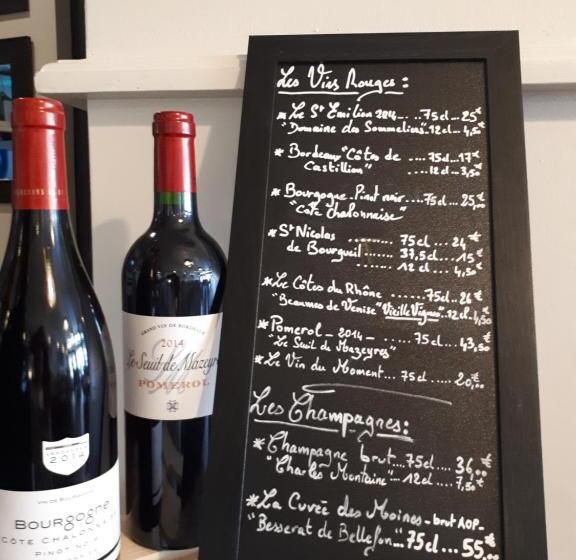 Les Vins Rouges :
* Le St Emilion 2014 .... 75cl ... 25€
"Domaine des Sommeliers" .12cl.. 4,50€
* Bordeaux "Côtes de .... 75cl ..17€
Castillion" .... 12cl .. 3,50€
* Bourgogne Pinot noir .... 75cl .. 25,00€
"Côte chalonnaise"
* St Nicolas ........ 75cl .... 24€
de Bourgueil ....... 37,5cl .... 15€
........ 12cl .... 4,50€
* Le Côtes du Rhône ...... 75cl.. 26€
"Beaumes de Venise" Vieille Vignes ..12cl.
* Pomerol - 2014 - ..... 75cl .... 43,50€
"Le Seuil de Mazeyres"
* Le Vin du Moment ... 75cl .... 20,00€
Les Champagnes :
* Champagne brut... 75cl.... 36,00€
"Charles Montaine".. 12cl .... 7,50€
* La Cuvée des Moines - brut AOP -
"Besserat de Bellefon... 75cl ... 55€
GRAND VIN DE BORDEAUX
2014
Le Seuil de Mazeyr
POMEROL
2014
VIN DE BOURGOGNE
BOURGOGNE
CÔTE CHALONNA
PINOT NO